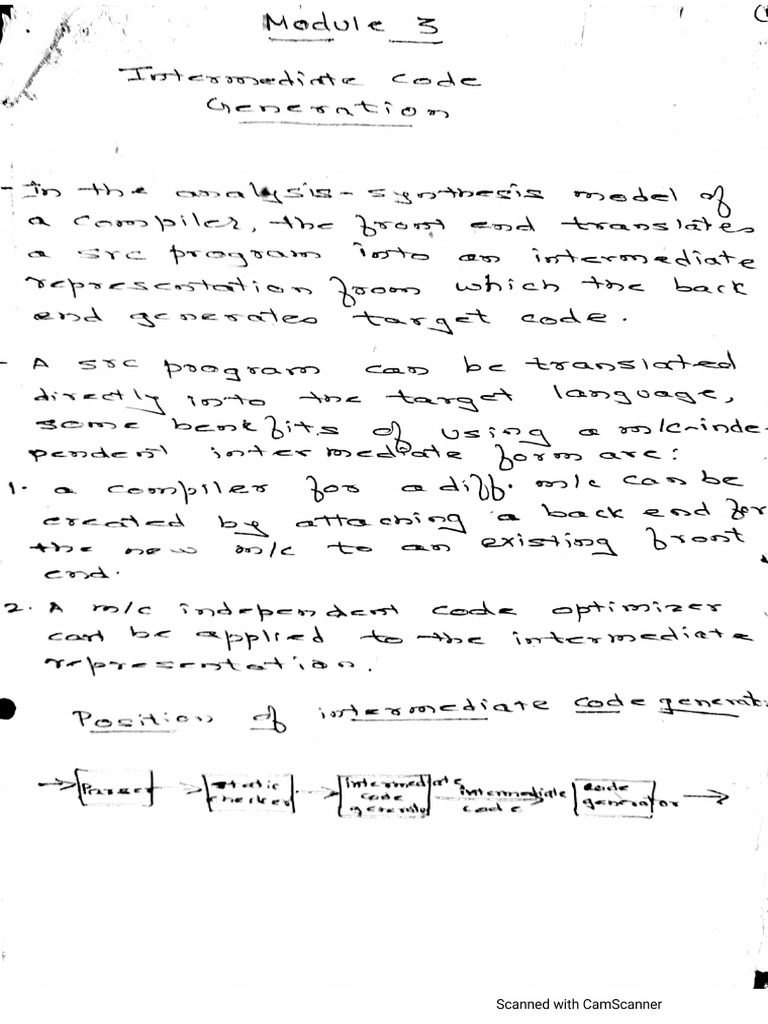 Module 3
Intermediate code
Generation
- In the analysis-synthesis model of
a compiler, the front end translates
a src program into an intermediate
representation from which the back
end generates target code.
- A src program can be translated
directly into the target language,
some benefits of using a m/c-inde-
pendent intermediate form are:
1. a compiler for a diff. m/c can be
created by attaching a back end for
the new m/c to an existing front
end.
2. A m/c independent code optimizer
can be applied to the intermediate
representation.
Position of intermediate code generat
Parser
static
checker
intermediate
code
generator
intermediate
code
code
generator
Scanned with CamScanner